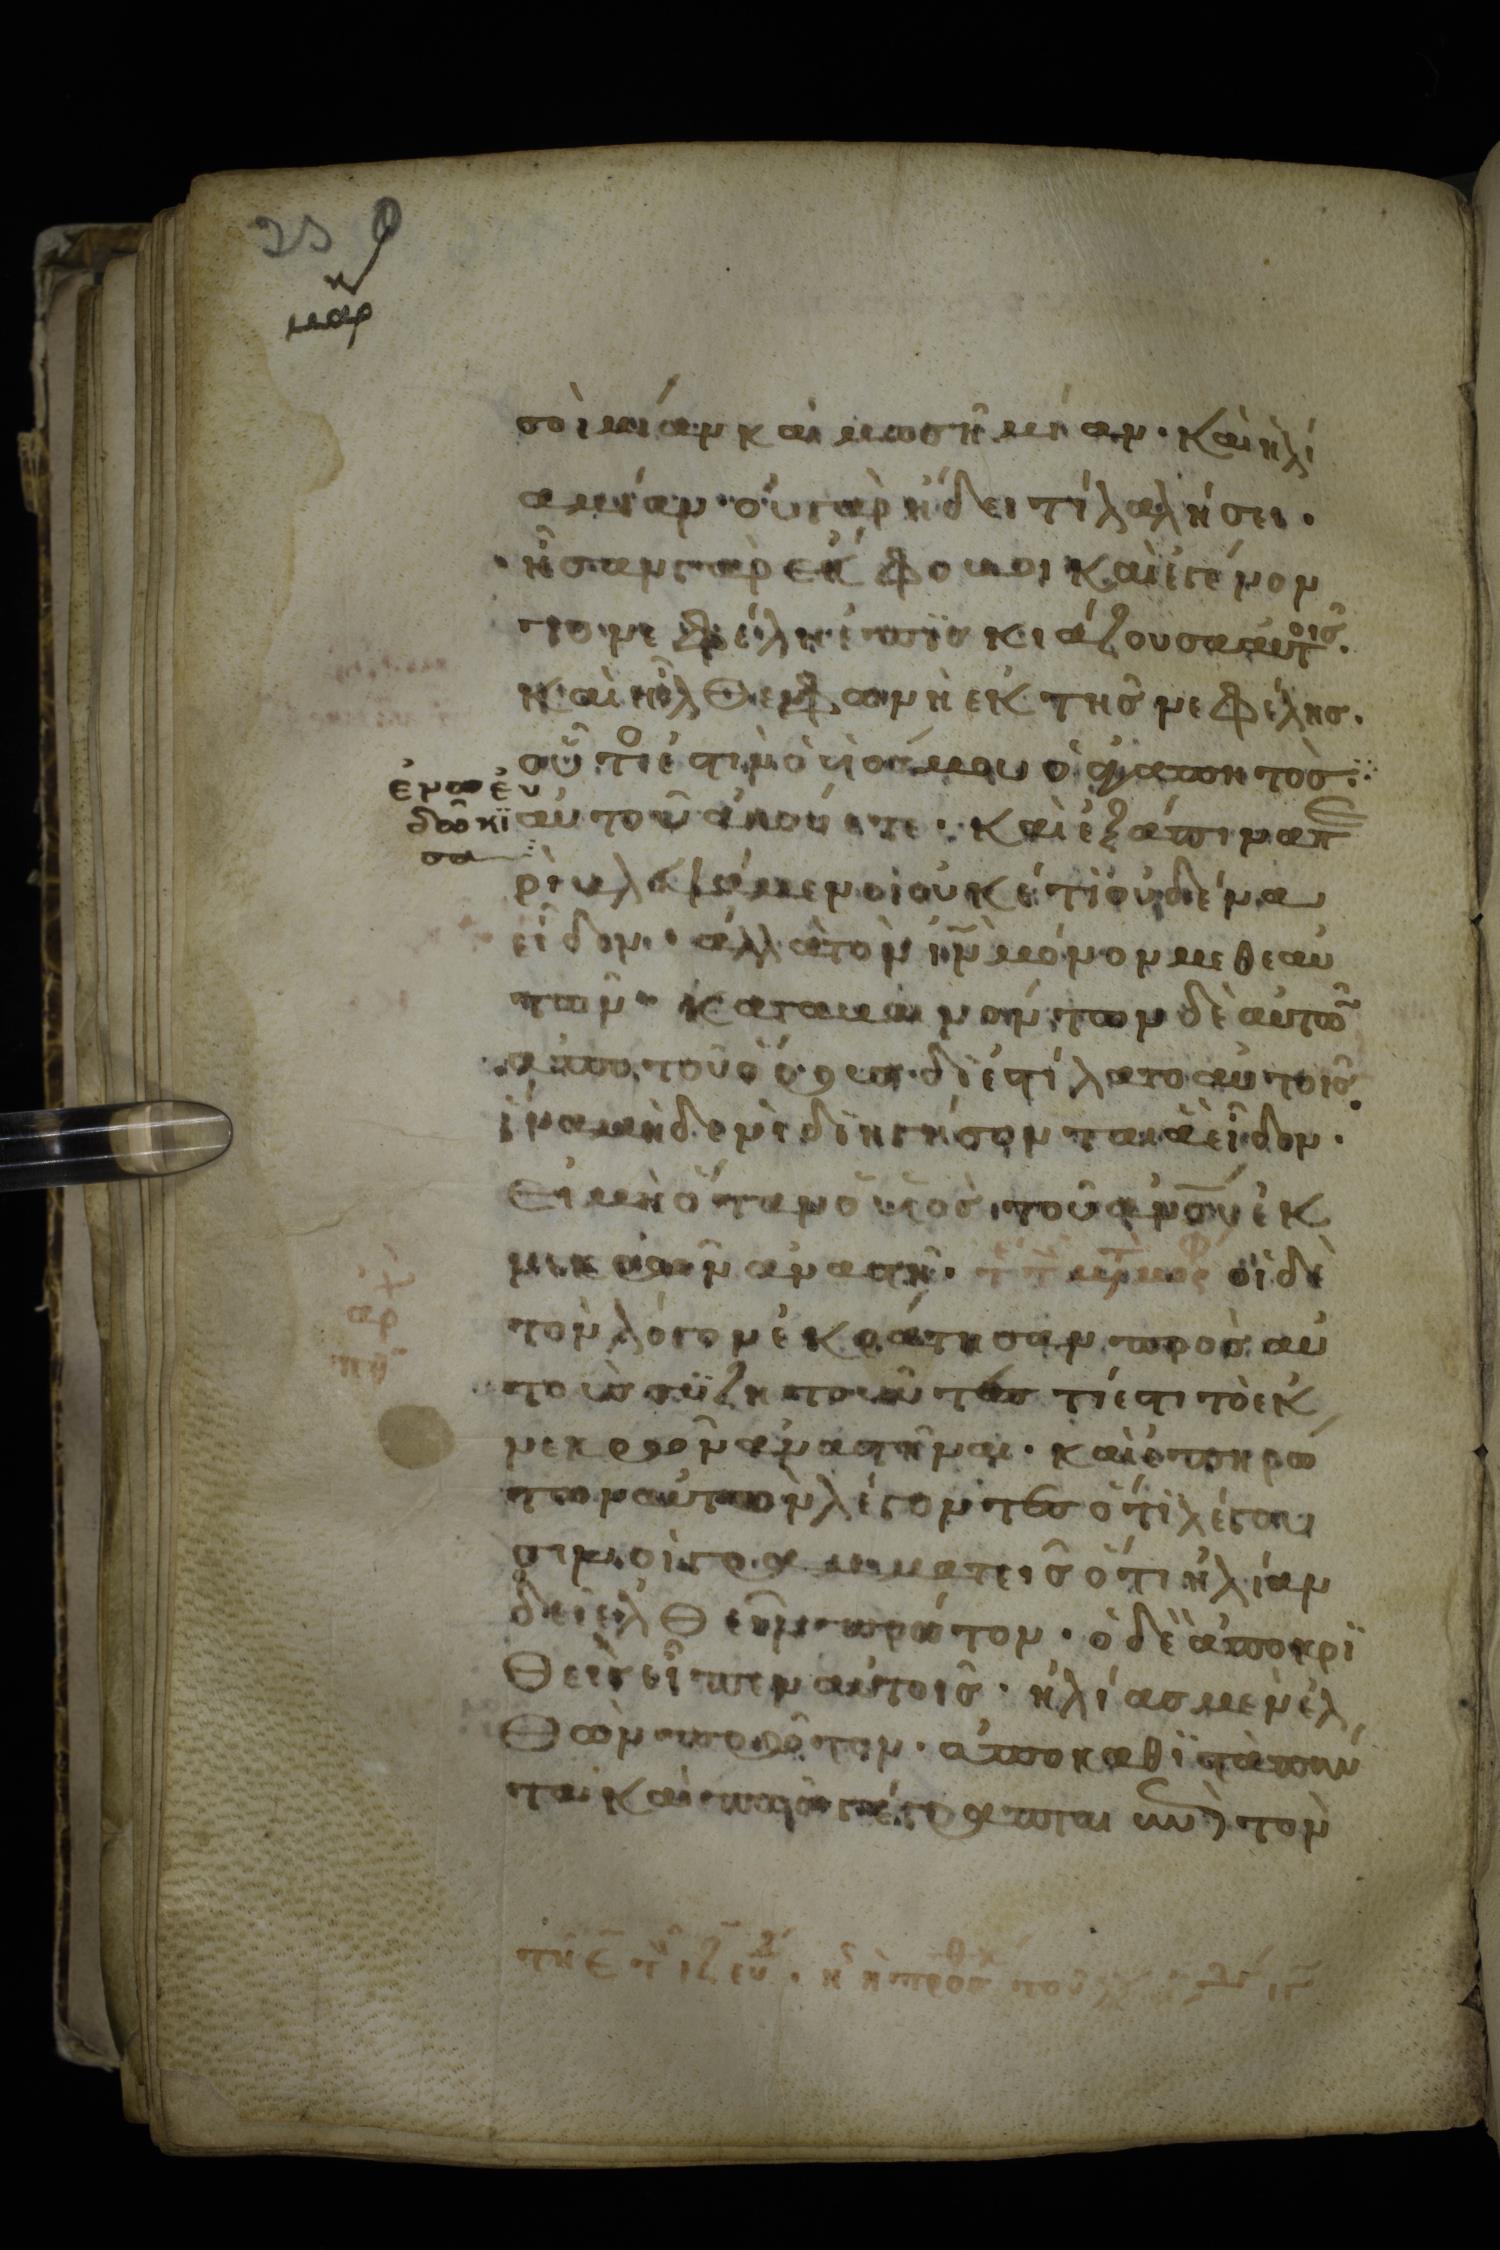 μαρ
σοὶ μίαν καὶ μωσῆ μίαν · καὶ ἠλί
α μίαν · οὐ γὰρ ἤδει τί λαλήσει ·
ἦσαν γὰρ ἔκφοβοι καὶ ἐγένον
το νεφέλη ἐπϊσκιάζουσα αὐτοῖς ·
καὶ ἦλθεν φωνὴ ἐκ τῆς νεφέλης ·
οὗτός ἐστιν ὁ υἱός μου ὁ ἀγαπητὸς
ἐν ὧ εὐ
δόκϊ
σα
αὐτοῦ ἀκούετε · καὶ ἐξάπινα π
ριβλεψάμενοι οὐκέτϊ οὐδένα
εἶδον · ἀλλὰ τὸν ιν μόνον μεθεαυ
τῶν · καταβαινόντων δὲ αὐτῶ
ἀπο τοῦ ὄρους διεστίλατο αὐτοῖς
ἵνα μηδενὶ διηγήσον ται ἃ εἶδον ·
Εἰ μὴ ὅταν ὁ υἱος τοῦ ανου ἐκ
νεκρῶν ἀναστῆ · οἱ δὲ
τὸν λόγον ἐκράτησαν πρὸς αὐ
τοὺς συζητοῦντες τί ἐστι τὸ ἐκ
νεκρῶν ἀναστῆναι · καὶ ἐπηρώ
των αὐτὸν λέγοντες ὅτϊ λέγου
σιν οἱ γραμματεῖς ὅτι ἠλίαν
δεῖ ἐλθεῖν πρῶτον · ὁ δὲ ἀποκρϊ
θεὶς εἶπεν αὐτοῖς · ἠλίας μὲν ἐλ
θὼν πρῶτον · ἀποκαθϊστᾶ πάν
τα · καὶ πῶς γέγραπται ἐπὶ τὸν